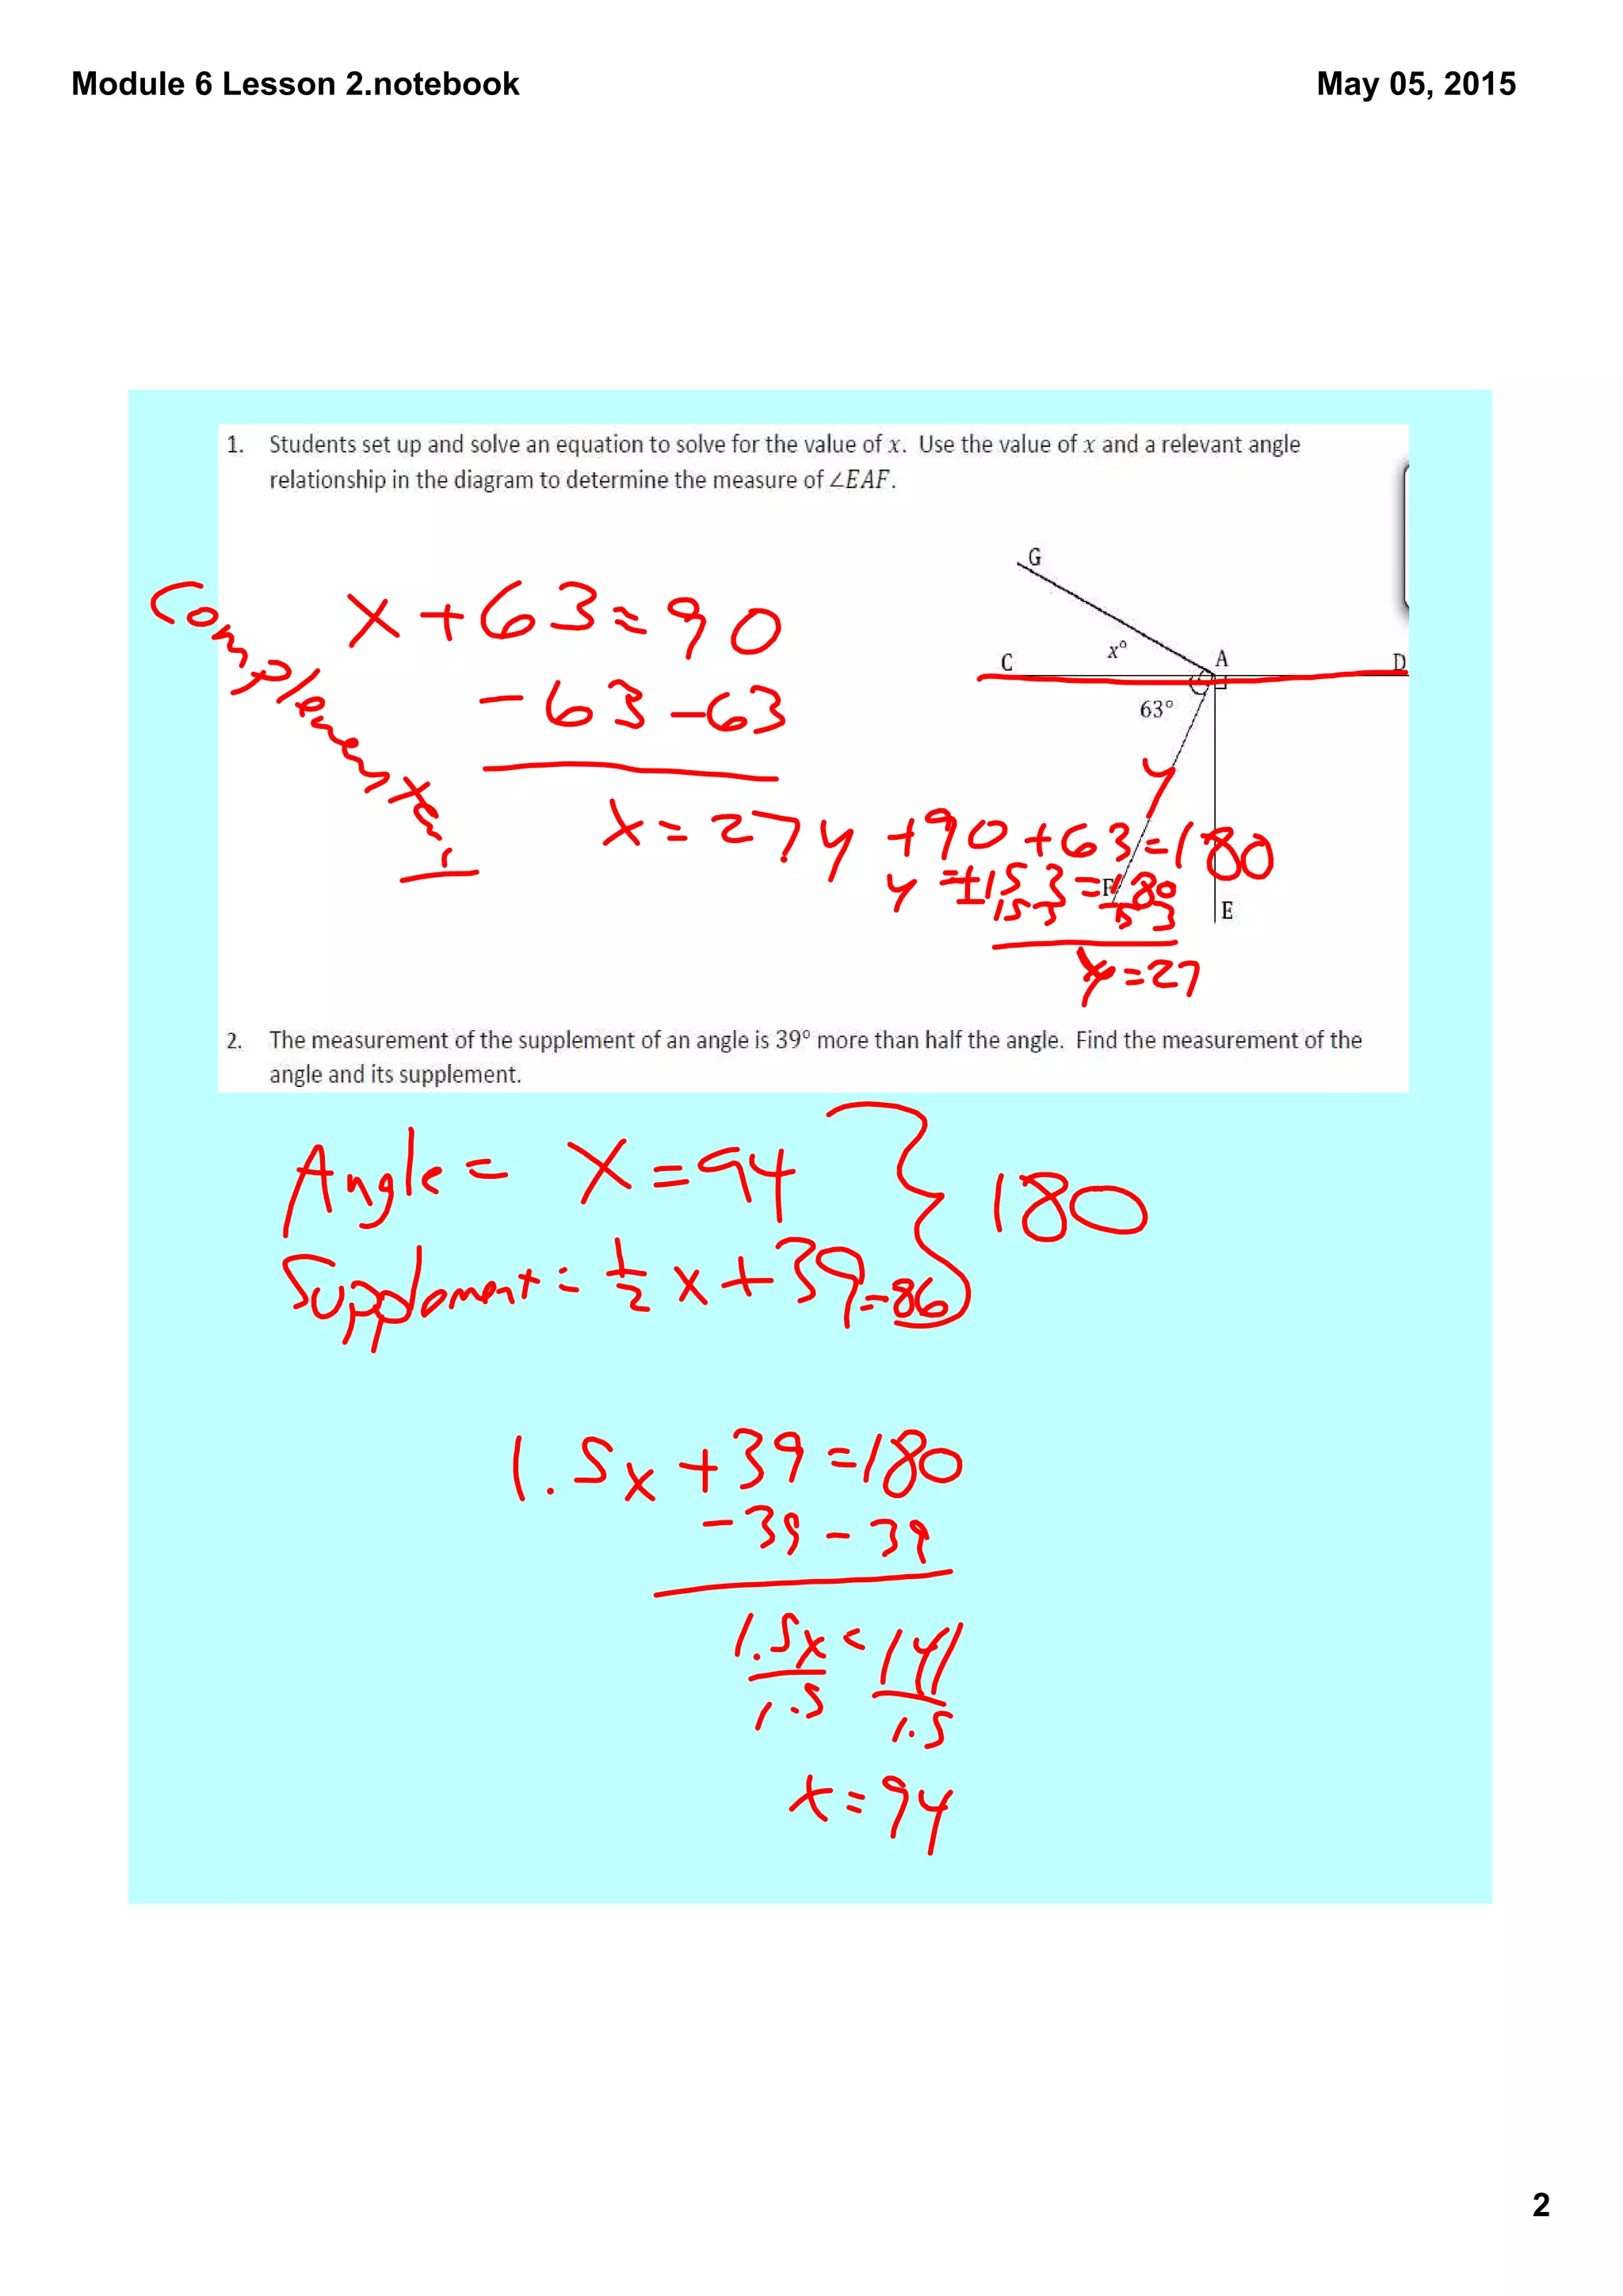 Module 6 Lesson 2.notebook
May 05, 2015
1. Students set up and solve an equation to solve for the value of x. Use the value of x and a relevant angle
relationship in the diagram to determine the measure of ∠EAF.
G
x°
C
A
D
63°
y
F
E
x + 63 = 90
- 63 - 63
x = 27
y + 90 + 63 = 180
y + 153 = 180
153 153
y = 27
2. The measurement of the supplement of an angle is 39° more than half the angle. Find the measurement of the
angle and its supplement.
Angle = x = 94
180
Supplement = 1/2 x + 39 = 86
1.5x + 39 = 180
- 39 - 39
1.5x = 141
1.5 1.5
x = 94
2